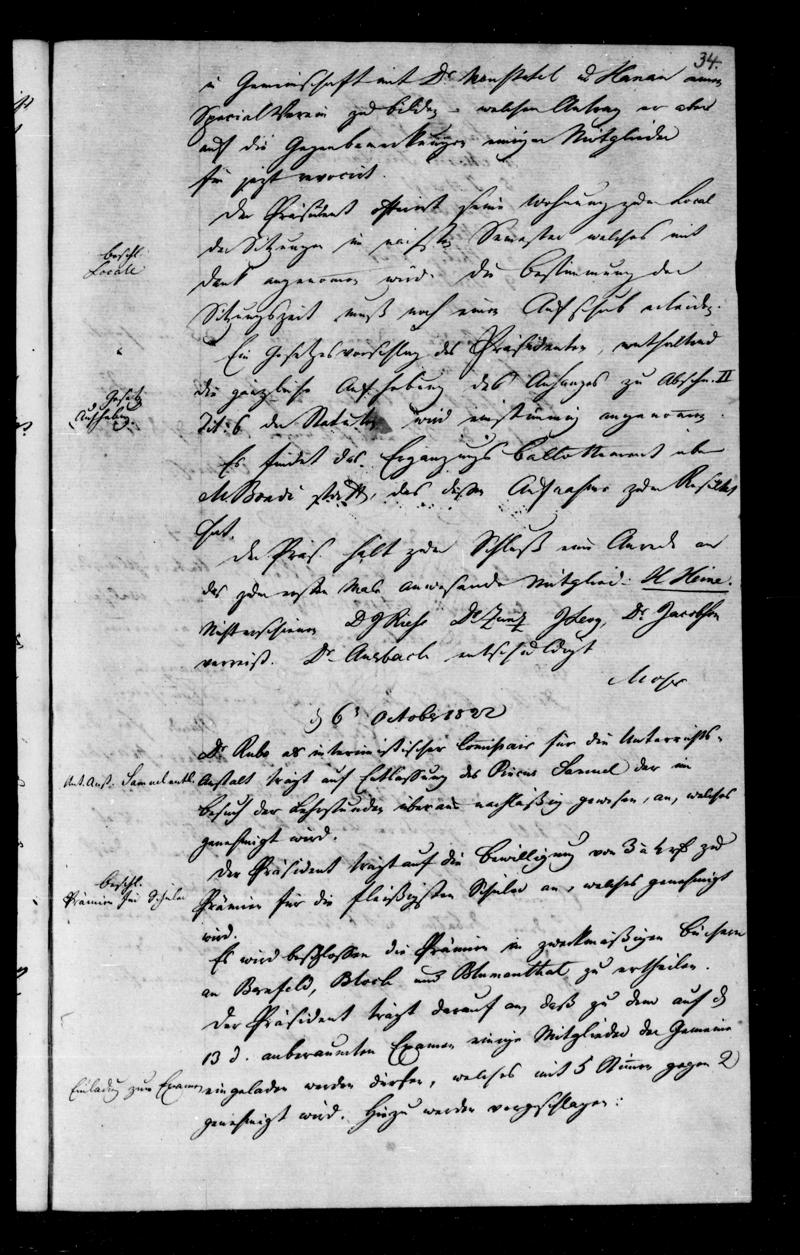 34.
in Gemeinschaft mit Dr Maustatel in Hanau einen
Special Verein zu bilden, welchen Antrag er aber
auf die Gegenbemerkungen einiger Mitglieder
für jezt revocirt.
Der Präsident offerirt seine Wohnung zum Local
der Sitzungen im nächsten Semester welches mit
beschl.
Locale
Dank angenommen wird. Die Bestimmung der
Sitzungszeit muß noch einen Aufschub erleiden.
Ein Gesetzesvorschlag des Präsidenten, enthaltend
die gänzliche Aufhebung des Anhanges zu Abschn. II
Gesetz
Aufhebung.
Tit. 6 der Statuten wird einstimmig angenommen.
Es findet das Ergänzungs Ballottement über
M. Bondi statt, das dessen Aufnahme zum Resultat
hat.
Der Präs hält zum Schluß eine Anrede an
das zum ersten Mal anwesende Mitglied H Heine.
Nichterschienen D J Rieß Dr Zunz J Levy, Dr Jacobson
verreist. Dr Auerbach entschuldigt
Moser
d 6t October 1822
Dr Rubo als interimistischer Commissair für die Unterrichts-
Unt. Anst. Samuel entl.
Anstalt trägt auf Entlassung des Pincus Samuel der im
Besuch der Lehrstunden überaus nachläßig gewesen, an, welches
genehmigt wird.
Der Präsident trägt auf die Bewilligung von 3 à 4 rth zu
beschl.
Prämien für Schüler
Prämien für die fleißigsten Schüler an, welches genehmigt
wird.
Es wird beschlossen die Prämien in zweckmäßigen Büchern
an Benfeld, Bloch und Blumenthal zu ertheilen.
Der Präsident trägt darauf an, daß zu dem auf d
13 d. anberaumten Examen einige Mitglieder der Gemeine
Einladung zum Examen
eingeladen werden dürfen, welches mit 5 Stimmen gegen 2
genehmigt wird. Hiezu werden vorgeschlagen: